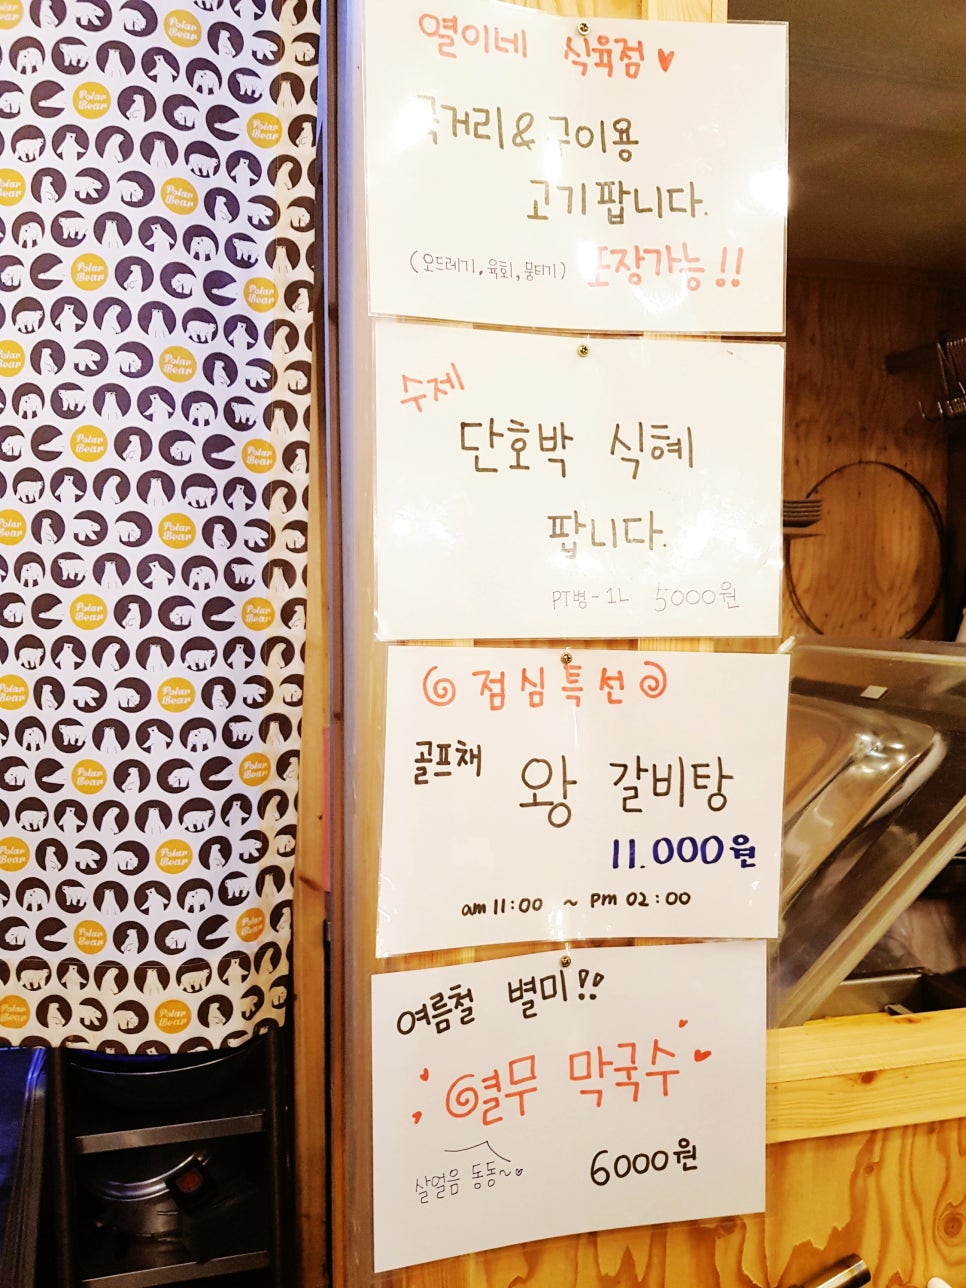 열이네 식육점
국거리 & 구이용
고기 팝니다.
(오드레기, 육회, 뭉티기) 포장가능!!
수제
단호박 식혜
팝니다.
PT병-1L 5000원
점심특선
골프채 왕 갈비탕
11.000원
am 11:00 ~ pm 02:00
여름철 별미!!
열무 막국수
살얼음 동동~
6000원
Polar Bear